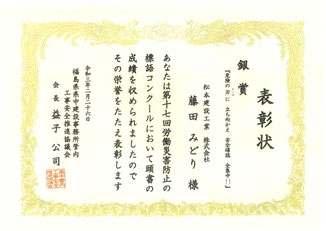 表彰状
銀賞
『危険の刃に 立ち向かえ 安全確認 全集中!!』
松本建設工業 株式会社
藤田 みどり 様
あなたは第十七回労働災害防止の
標語コンクールにおいて頭書の
成績を収められましたので
その栄誉をたたえ表彰します
令和三年二月二十六日
福島県県中建設事務所管内
工事安全推進協議会
会長 益子 公司